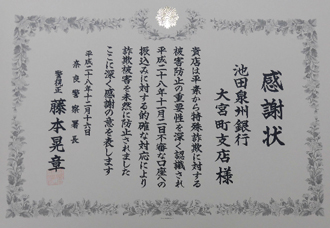 感謝状
池田泉州銀行
大宮町支店様
貴店は平素から特殊詐欺に対する
被害防止の重要性を深く認識され
平成二十八年十一月二日不審な口座への
振込みに対する的確な対応により
詐欺被害を未然に防止されました
ここに深く感謝の意を表します
平成二十八年十二月十六日
奈良警察署長
警視正 藤本晃章